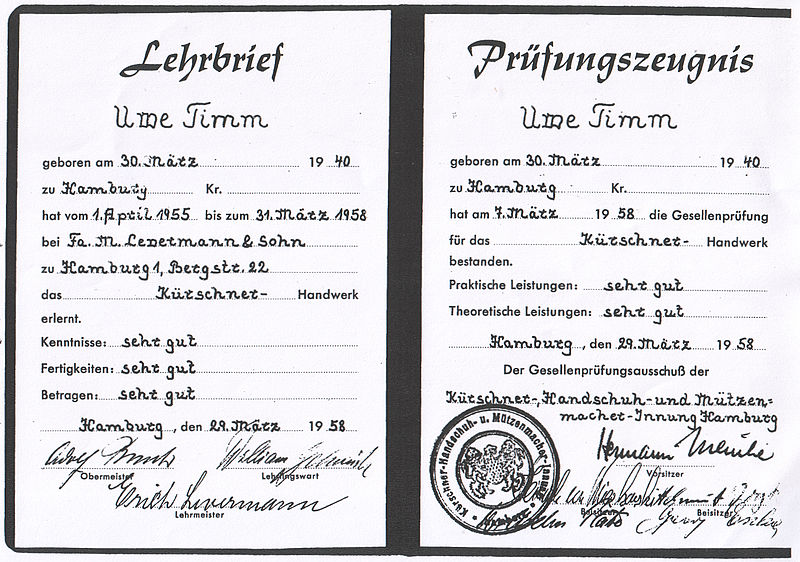 Lehrbrief
Uwe Timm
geboren am 30. März 1940
zu Hamburg Kr.
hat vom 1. April 1955 bis zum 31. März 1958
bei Fa. M. Levermann & Sohn
zu Hamburg 1, Bergstr. 22
das Kürschner- Handwerk
erlernt.
Kenntnisse: sehr gut
Fertigkeiten: sehr gut
Betragen: sehr gut
Hamburg, den 29. März 1958
Obermeister Lehrlingswart
Erich Levermann
Lehrmeister
Prüfungszeugnis
Uwe Timm
geboren am 30. März 1940
zu Hamburg Kr.
hat am 7. März 1958 die Gesellenprüfung
für das Kürschner- Handwerk
bestanden.
Praktische Leistungen: sehr gut
Theoretische Leistungen: sehr gut
Hamburg, den 29. März 1958
Der Gesellenprüfungsausschuß der
Kürschner-, Handschuh- und Mützen=
macher-Innung Hamburg
Hermann
Vorsitzer
Beisitzer Beisitzer
Kürschner-Handschuh- u. Mützenmacher-Innung
Hamburg